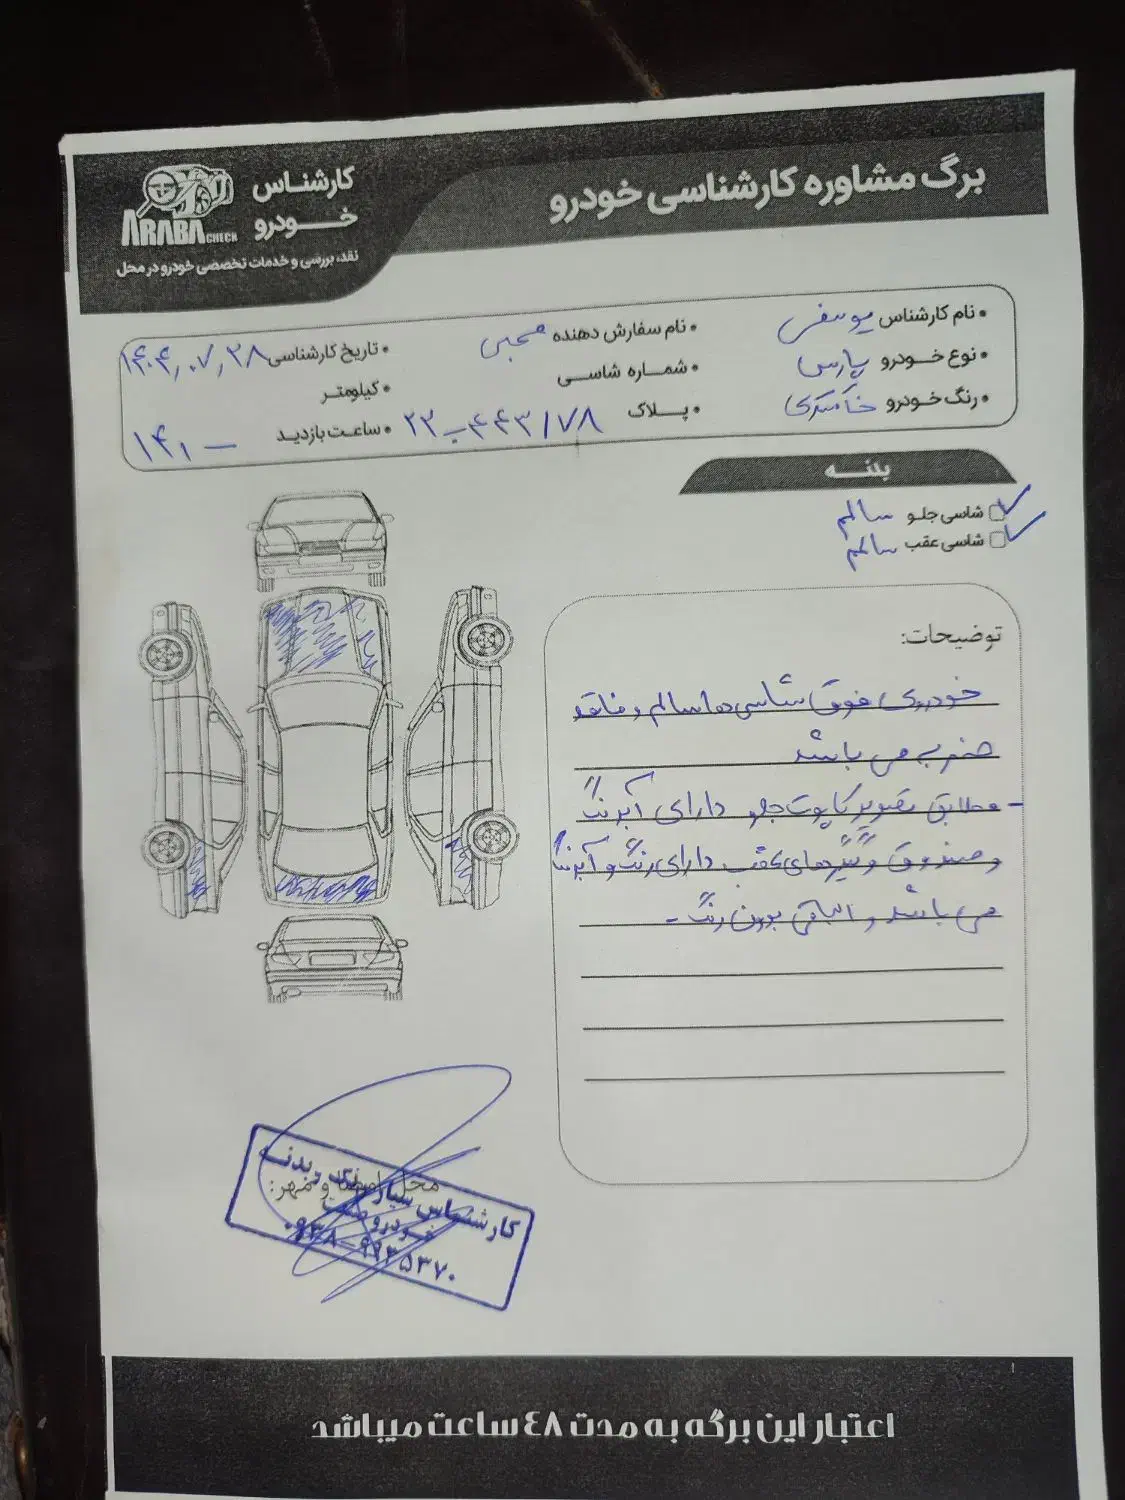 برگ مشاوره کارشناسی خودرو
کارشناس
خودرو
ARABA CHECK
نقد، بررسی و خدمات تخصصی خودرو در محل
• نام کارشناس یوسفی
• نام سفارش دهنده محبی
• تاریخ کارشناسی ۱۴۰۴,۰۷,۲۸
• نوع خودرو پارس
• شماره شاسی
• کیلومتر
• رنگ خودرو خاکستری
• پلاک ۷۸/۴۴۳ ب ۲۳
• ساعت بازدید ۱۴,۰ –
بدنه
شاسی جلو سالم
شاسی عقب سالم
توضیحات:
خودروی فوق شاسی ها سالم و فاقد
ضربه می باشد
- مطابق تصویر کاپوت جلو دارای آبرنگ
و صندوق و گلگیرهای عقب دارای رنگ و آبرنگ
می باشد و الباقی بدون رنگ -
محل امضا و مهر:
کارشناس سیار رنگ و بدنه
خودرو
۰۹۳۸-۹۹۳۵۳۷۰
اعتبار این برگه به مدت ٤٨ ساعت میباشد